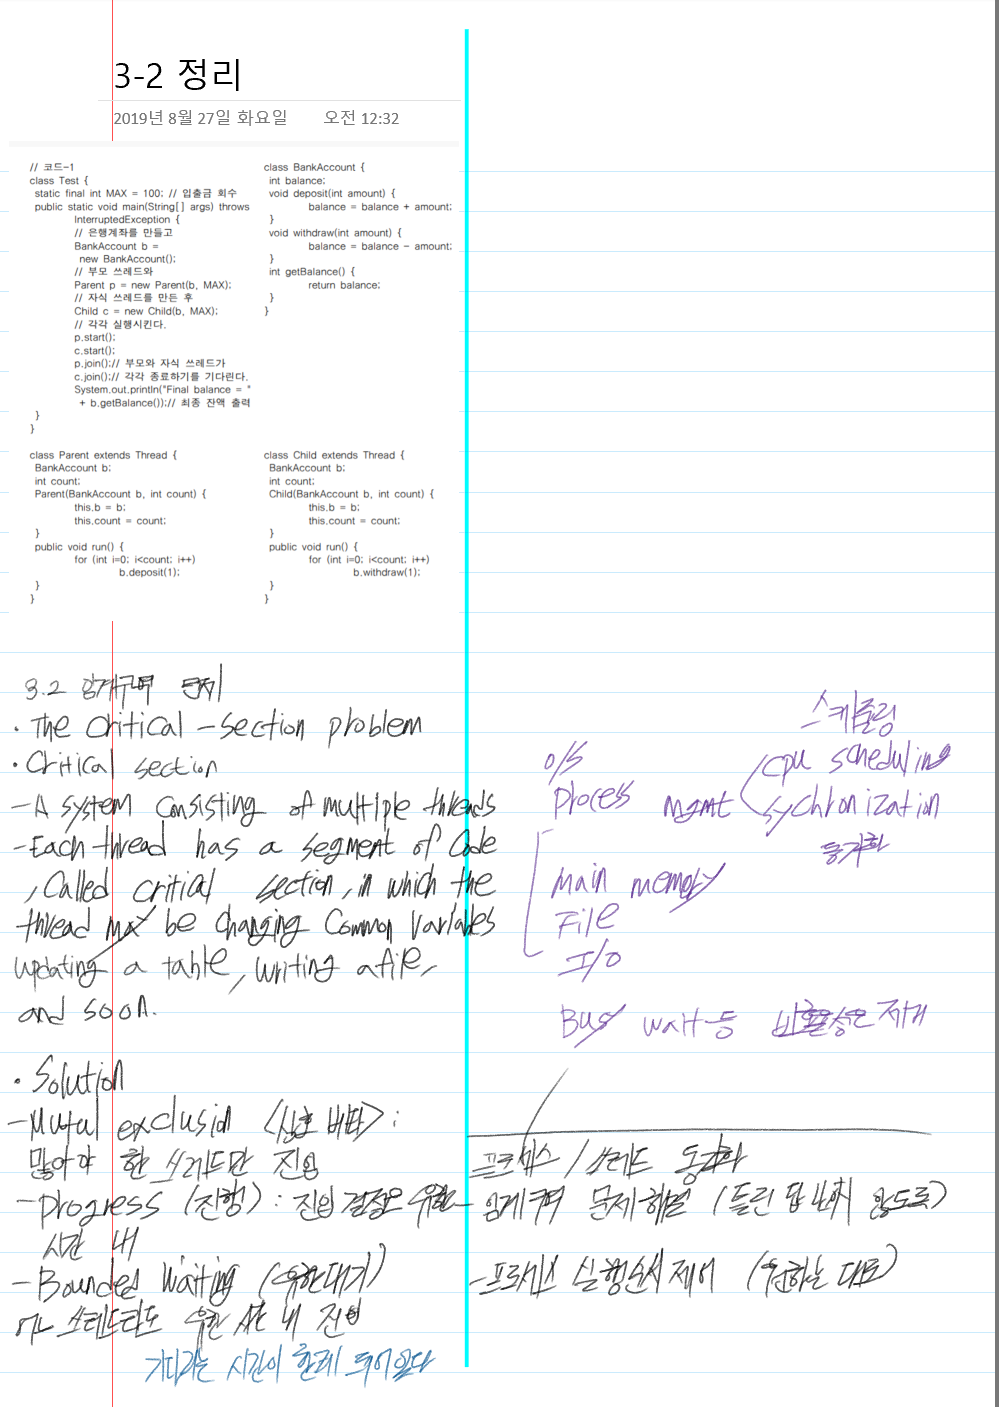 3-2 정리
2019년 8월 27일 화요일 오전 12:32
// 코드-1
class Test {
static final int MAX = 100; // 입출금 회수
public static void main(String[] args) throws
InterruptedException {
// 은행계좌를 만들고
BankAccount b =
new BankAccount();
// 부모 쓰레드와
Parent p = new Parent(b, MAX);
// 자식 쓰레드를 만든 후
Child c = new Child(b, MAX);
// 각각 실행시킨다.
p.start();
c.start();
p.join();// 부모와 자식 쓰레드가
c.join();// 각각 종료하기를 기다린다.
System.out.println("Final balance = "
+ b.getBalance());// 최종 잔액 출력
}
}
class BankAccount {
int balance;
void deposit(int amount) {
balance = balance + amount;
}
void withdraw(int amount) {
balance = balance - amount;
}
int getBalance() {
return balance;
}
}
class Parent extends Thread {
BankAccount b;
int count;
Parent(BankAccount b, int count) {
this.b = b;
this.count = count;
}
public void run() {
for (int i=0; i<count; i++)
b.deposit(1);
}
}
class Child extends Thread {
BankAccount b;
int count;
Child(BankAccount b, int count) {
this.b = b;
this.count = count;
}
public void run() {
for (int i=0; i<count; i++)
b.withdraw(1);
}
}
3.2 임계구역 문제
· The critical-section problem
· Critical section
- A system consisting of multiple threads
- Each thread has a segment of code
, called critical section, in which the
thread may be changing common variables
updating a table, writing a file,
and so on.
· Solution
- Mutual exclusion <상호 배타> :
많아야 한 쓰레드만 진입
- progress (진행) : 진입 결정은 유한
시간 내
- Bounded waiting (유한대기)
어느 쓰레드라도 유한 시간 내 진입
기다리는 시간이 한계 되어있다
스케줄링
O/S
process mgmt
cpu scheduling
sychronization
동기화
Main memory
File
I/O
Busy wait 등 비활성은 제거
프로세스 / 쓰레드 동기화
- 임계구역 문제해결 (틀린 답 나오지 않도록)
- 프로세스 실행순서 제어 (원하는 대로)